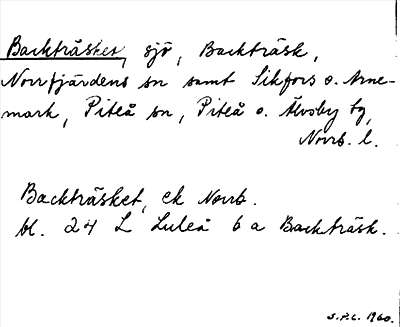 Backträsket, sjö, Backträsk,
Norrfjärdens sn samt Sikfors o. Arne-
mark, Piteå sn, Piteå o. Älvsby tg,
Norrb. l.
Backträsket, ek Norrb.
bl. 24 L Luleå 6 a Backträsk.
S.P.L. 1960.